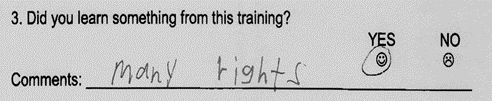 3. Did you learn something from this training?
YES NO
Comments: many rights